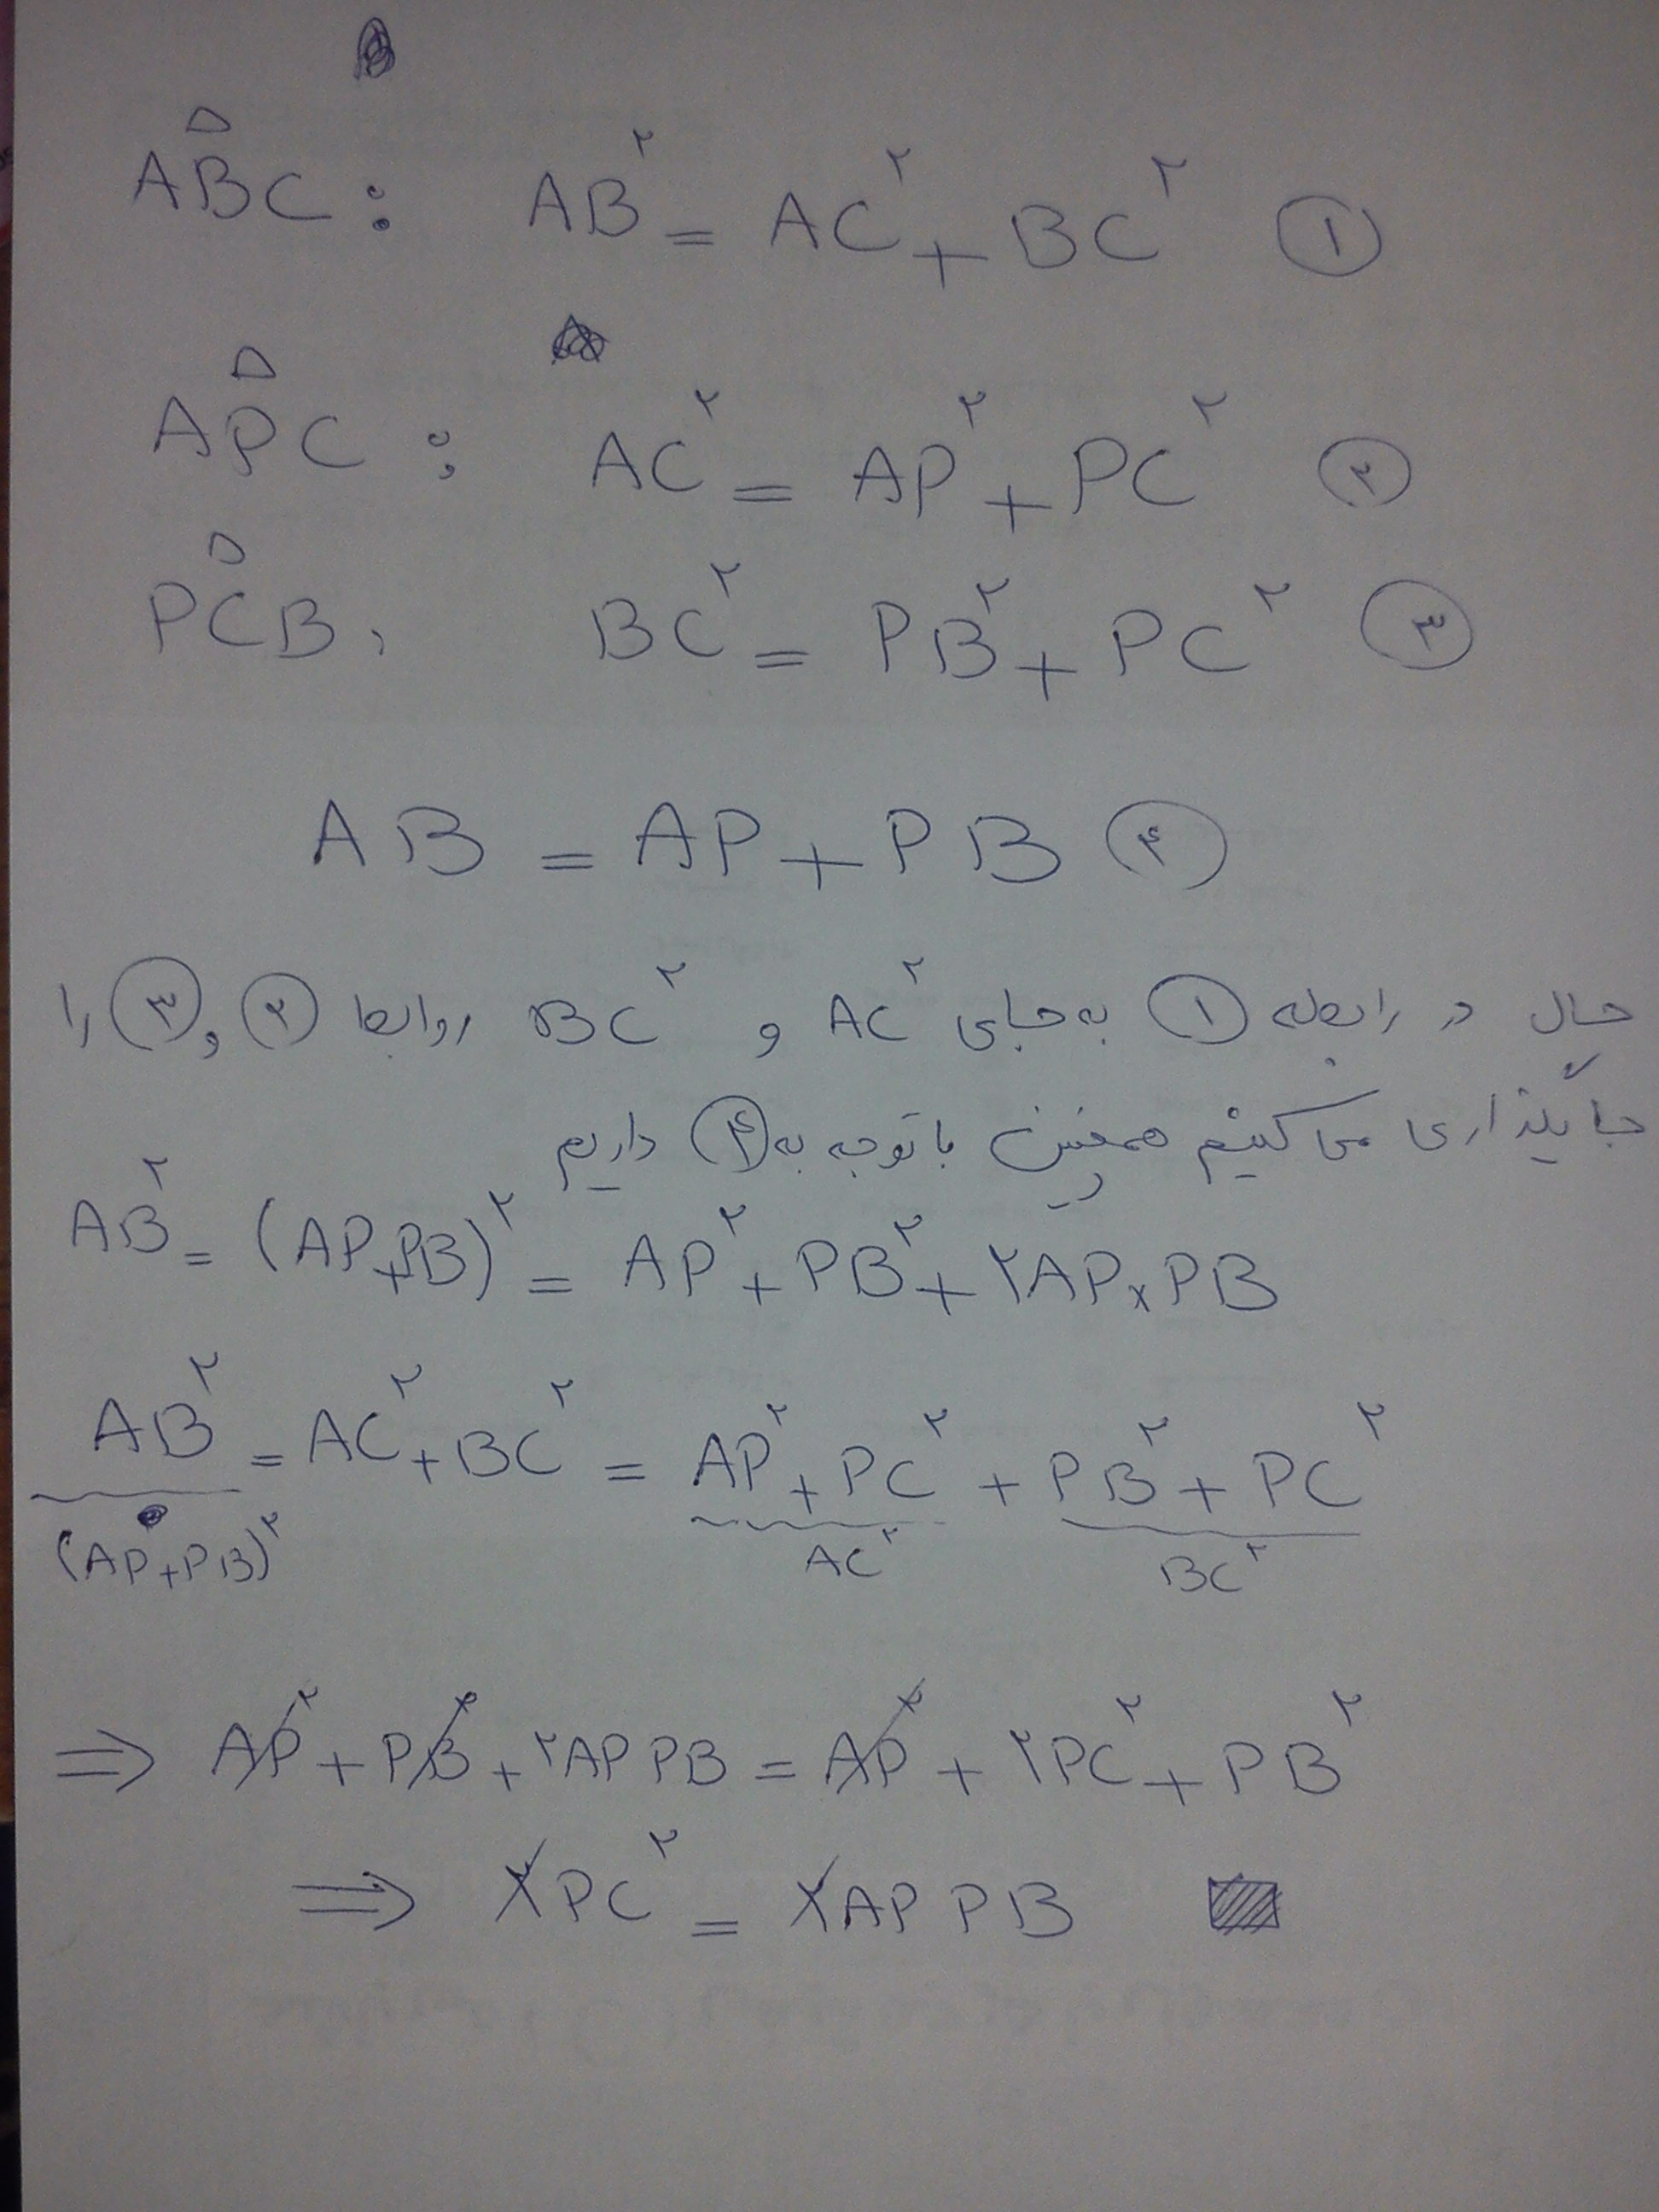 ABC: AB^۲ = AC^۲ + BC^۲ ①
APC: AC^۲ = AP^۲ + PC^۲ ②
PCB: BC^۲ = PB^۲ + PC^۲ ③
AB = AP + PB ④
حال در رابطه ① به جای AC^۲ و BC^۲ روابط ② و ③ را
جایگذاری می کنیم همچنین با توجه به ④ داریم
AB^۲ = (AP+PB)^۲ = AP^۲ + PB^۲ + ۲AP×PB
AB^۲ = AC^۲ + BC^۲ = AP^۲ + PC^۲ + PB^۲ + PC^۲
(AP+PB)^۲ AC^۲ BC^۲
⇒ AP^۲ + PB^۲ + ۲AP PB = AP^۲ + ۲PC^۲ + PB^۲
⇒ ۲PC^۲ = ۲AP PB